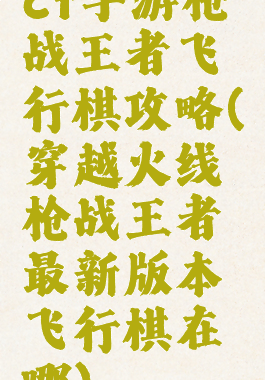 cf手游枪
战王者飞
行棋攻略(
穿越火线
枪战王者
最新版本
飞行棋在
哪)